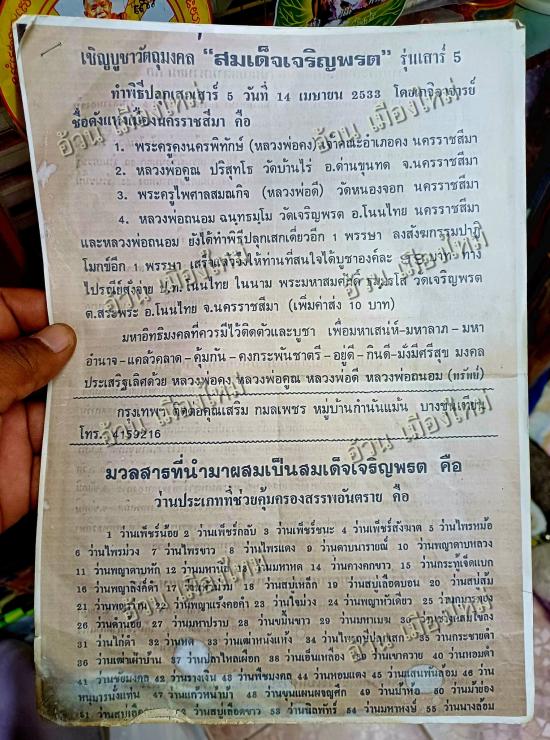 เชิญบูชาวัตถุมงคล "สมเด็จเจริญพรต" รุ่นเสาร์ 5
ทำพิธีปลุกเสกเสาร์ 5 วันที่ 14 เมษายน 2533 โดย
ชื่อดังแห่งเมืองนครราชสีมา คือ
1. พระครูคงนครพิทักษ์ (หลวงพ่อคง) เจ้าคณะอำเภอคง นครราชสีมา
2. หลวงพ่อคูณ ปริสุทโธ วัดบ้านไร่ อ.ด่านขุนทด จ.นครราชสีมา
3. พระครูไพศาลสมณกิจ (หลวงพ่อดี) วัดหนองจอก นครราชสีมา
4. หลวงพ่อถนอม ฉนฺทธมฺโม วัดเจริญพรต อ.โนนไทย นครราชสีมา
และหลวงพ่อถนอม ยังได้ทำพิธีปลุกเสกเดี่ยวอีก 1 พรรษา ลงสังฆกรรมปาฏิ
โมกข์อีก 1 พรรษา เสร็จแล้วจึงให้ท่านที่สนใจได้บูชาองค์ละ บาท ทาง
ไปรณีย์สั่งจ่าย ป.ท.โนนไทย ในนาม พระมหาสมศักดิ์ วัดเจริญพรต
ต.สระพระ อ.โนนไทย จ.นครราชสีมา (เพิ่มค่าส่ง 10 บาท)
มหาอิทธิมงคลที่ควรมีไว้ติดตัวและบูชา เพื่อมหาเสน่ห์-มหาลาภ-มหา
อำนาจ-แคล้วคลาด-คุ้มกัน-คงกระพันชาตรี-อยู่ดี-กินดี-มั่งมีศรีสุข มงคล
ประเสริฐเลิศด้วย หลวงพ่อคง หลวงพ่อคูณ หลวงพ่อดี หลวงพ่อถนอม (ทรัพย์)
กรุงเทพฯ ติดต่อคุณเสริม กมลเพชร หมู่บ้านกำนันแม้น บางขุนเทียน
โทร. 4159216
มวลสารที่นำมาผสมเป็นสมเด็จเจริญพรต คือ
ว่านประเภทที่ช่วยคุ้มครองสรรพอันตราย คือ
1 ว่านเพ็ชร์น้อย 2 ว่านเพ็ชร์กลับ 3 ว่านเพ็ชร์ชนะ 4 ว่านเพ็ชร์สังฆาต 5 ว่านไพรหม้อ
6 ว่านไพรม่วง 7 ว่านไพรขาว 8 ว่านไพรแดง 9 ว่านดาบนารายณ์ 10 ว่านพญาดาบหลวง
11 ว่านพญาดาบหัก 12 ว่านมหานิล 13 ว่านมหากาฬ 14 ว่านคางคกขาว 15 ว่านกระทู้เจ็ดแบก
16 ว่านพญาลิงค์ดำ 18 ว่านสบู่เหล็ก 19 ว่านสบู่เลือดบอน 20 ว่านสบู่ส้ม
21 22 ว่านพญาแร้งคอดำ 23 ว่านใจม่วง 24 ว่านพญาหัวเดียว 25
26 ว่านดำน้อย 27 ว่านมหาปราบ 28 ว่านขมิ้นขาว 29 ว่านมหาเมฆ 30
31 ว่านไก่ดำ 32 33 ว่านเฒ่าหนังแห้ง 34 ว่านไพรฤษีปลุกเสก 35 ว่านกระชายดำ
36 ว่านเฒ่าเฝ้าบ้าน 37 ว่านปลาไหลเผือก 38 ว่านเอ็นเหลือง 39 ว่านเขาควาย 40 ว่านหอมดำ
41 ว่านชัยมงคล 42 ว่านรางเงิน 43 ว่านพืชมงคล 44 ว่านหอมแดง 45 ว่านแสนพันล้อม 46 ว่าน
หนุมานนั่งแท่น 47 ว่านแก้วหน้าม้า 48 ว่านขุนแผนผจญศึก 49 ว่านม้าห้อ 50 ว่านม้าย่อง
51 ว่านสบู่เลือด 52 ว่านสบู่เลือดขาว 53 ว่านนิลพัทร์ 54 ว่านมหาหงส์ 55 ว่านนางล้อม
อ้วน เมืองใหม่
อ้วน เมืองใหม่
อ้วน เมืองใหม่
อ้วน เมืองใหม่
อ้วน เมืองใหม่
อ้วน เมืองใหม่
อ้วน เมืองใหม่
อ้วน เมืองใหม่